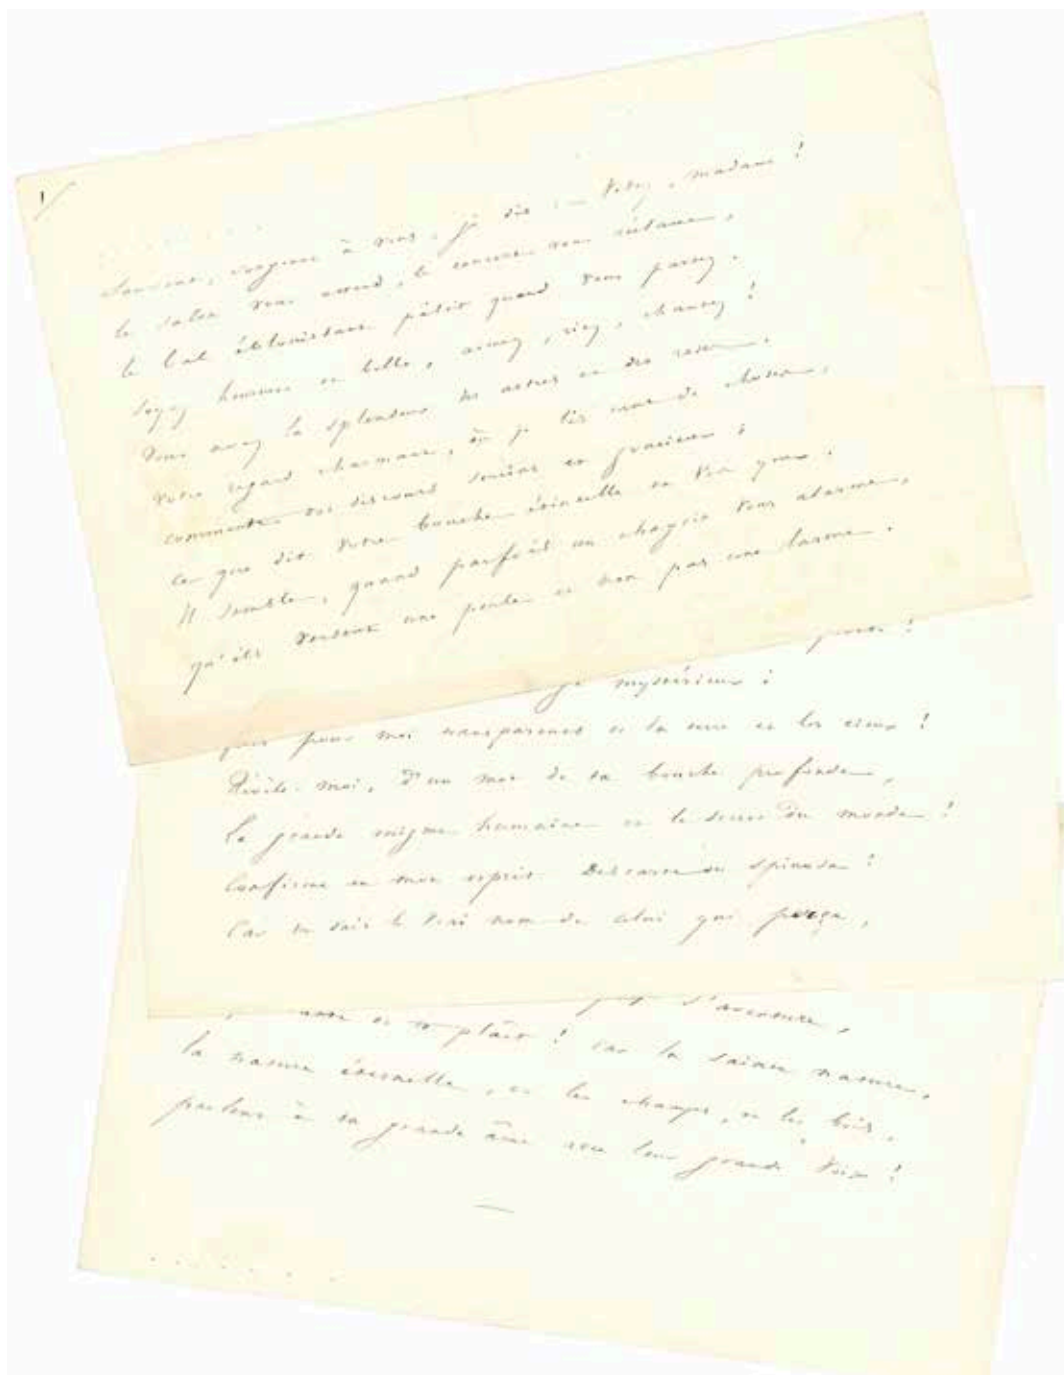 1
Souvent, songeant à vous, je dis : — Fêtez, madame !
le salon vous attend, le concert vous réclame,
le bal éblouissant pâlit quand vous partez.
soyez heureuse et belle, aimez, riez, chantez !
vous avez la splendeur des astres et des roses.
votre regard charmant, où je lis tant de choses,
commente vos discours sereins et gracieux ;
ce que dit votre bouche étincelle en vos yeux.
Il semble, quand parfois un chagrin vous alarme,
qu'ils versent une perle et non pas une larme.
mystérieux ;
pour moi transparents et la terre et les cieux !
Révèle-moi, d'un mot de ta bouche profonde,
La grande énigme humaine et le secret du monde !
Confirme en mon esprit Descarte ou Spinosa !
Car tu sais le vrai nom de celui qui perça,
d'aventure,
et te plaît ! car la sainte nature,
la nature éternelle, et les champs, et les bois,
parlent à ta grande âme avec leur grande voix !